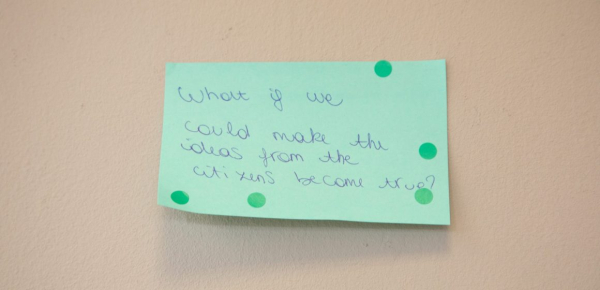 What if we
could make the
ideas from the
citizens become true?